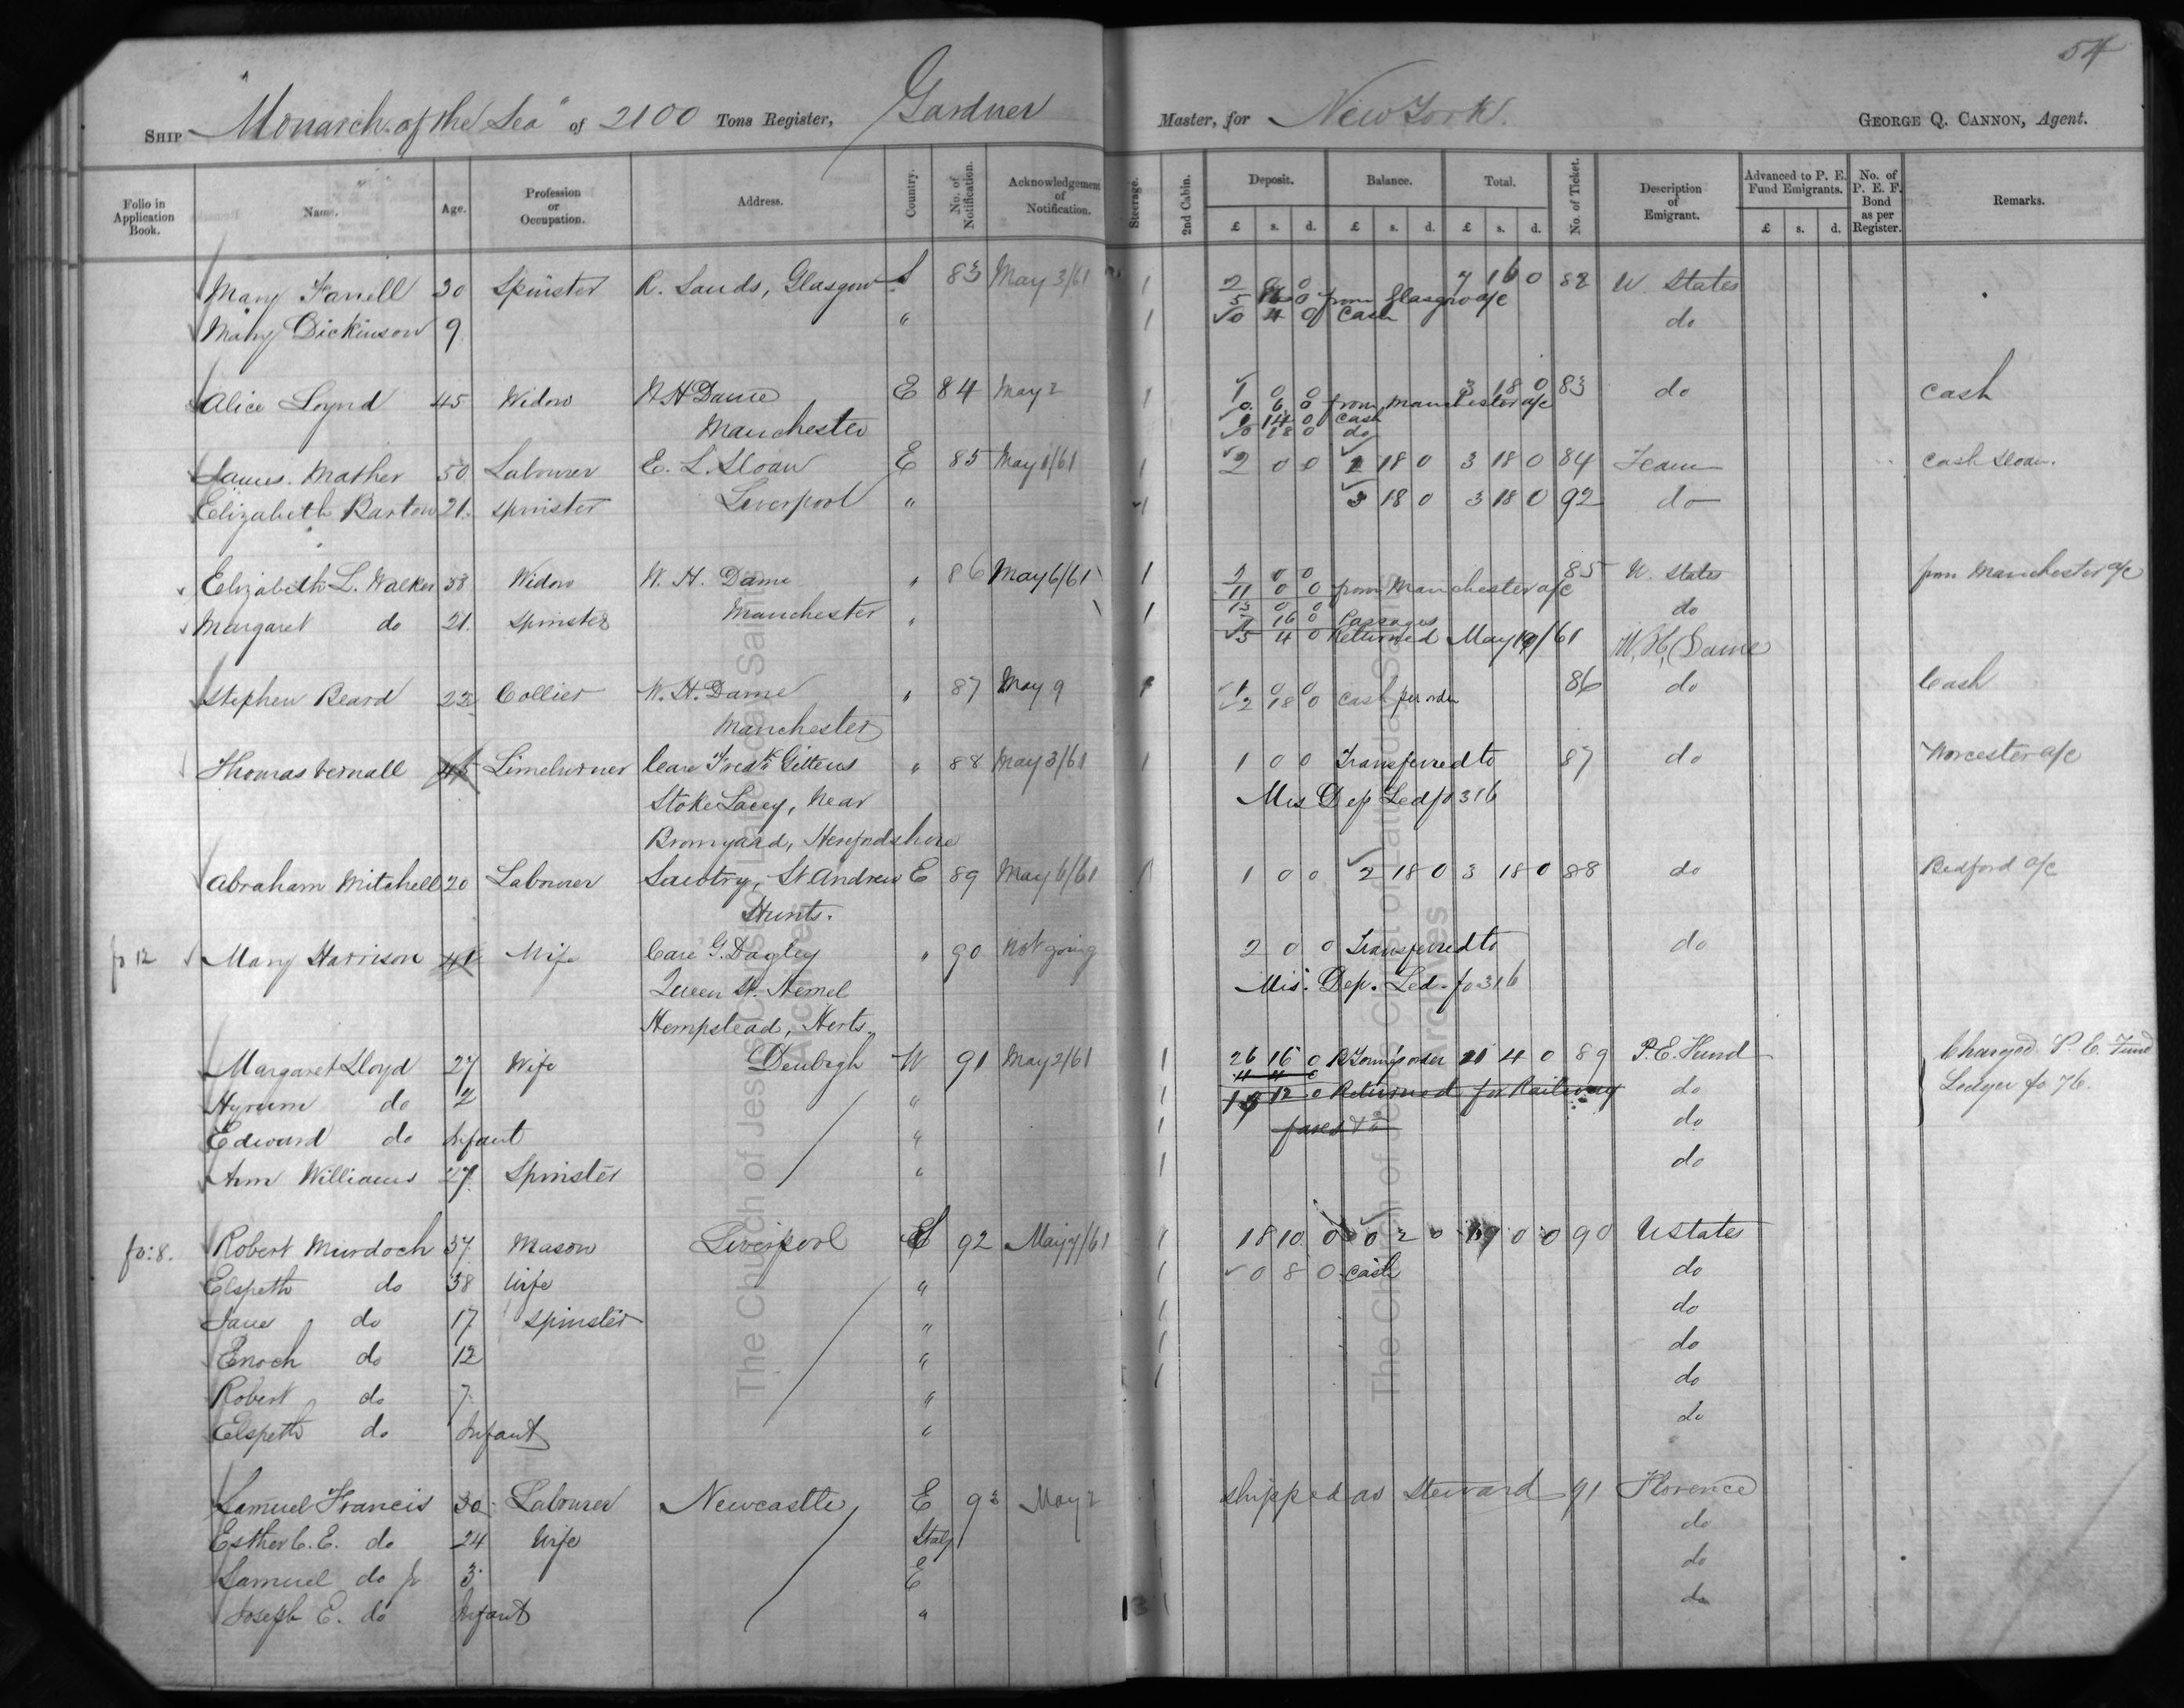 54
SHIP "Monarch of the Sea" of 2100 Tons Register, Gardner Master, for New York. GEORGE Q. CANNON, Agent.
Folio in Application Book. Name. Age. Profession or Occupation. Address. Country. No. of Notification. Acknowledgement of Notification. Steerage. 2nd Cabin. Deposit. Balance. Total. No. of Ticket. Description of Emigrant. Advanced to P. E. Fund Emigrants. No. of P. E. F. Bond as per Register. Remarks.
£ s. d. £ s. d. £ s. d. £ s. d.
Mary Farrell 30 Spinster R. Sands, Glasgow S 83 May 3/61 1 2 0 0 7 16 0 82 U. States
5 0 from Glasgow a/c
Mary Dickinson 9 " 1 0 4 0 Cash do
Alice Loynd 45 Widow W H Dame E 84 May 2 1 1 0 0 3 18 0 83 do Cash
0 6 0 from Manchester a/c
Manchester 1 14 0 Cash
0 18 0 do
James Mather 50 Labourer E. L. Sloan E 85 May 1/61 1 2 0 0 1 18 0 3 18 0 84 Team Cash Sloan.
Elizabeth Barton 21 Spinster Liverpool " 1 3 18 0 3 18 0 92 do
Elizabeth L. Walker 58 Widow W. H. Dame " 86 May 6/61 1 2 0 0 85 U. States from Manchester a/c
11 0 0 from Manchester a/c
Margaret do 21 Spinster Manchester " 1 13 0 0 do
7 16 0 Passages
5 4 0 Returned May 19/61 W. H. Dame
Stephen Beard 22 Collier W. H. Dame " 87 May 9 1 1 0 0 86 do Cash
2 18 0 Cash per order
Manchester
Thomas Vernall 45 Limeburner Care Fredk Gittens " 88 May 3/61 1 1 0 0 Transferred to 87 do Worcester a/c
Stoke Lacey, Near Mis Dep Led fo 316
Bromyard, Herefordshire
Abraham Mitchell 20 Labourer Sawtry, St Andrew E 89 May 6/61 1 1 0 0 2 18 0 3 18 0 88 do Bedford a/c
Hunts.
fo 12 Mary Harrison 41 Wife Care G. Dagley " 90 Not going 2 0 0 Transferred to do
Queen St. Hemel Mis. Dep. Led. fo 316
Hempstead, Herts.
Margaret Lloyd 27 Wife Denbigh W 91 May 2/61 1 26 16 0 4 0 89 P. E. Fund Charged P. E. Fund
Hyrum do 2 " 1 12 0 Returned for Railway do Ledger fo 76.
Edward do Infant " 1 fares do
Ann Williams 27 Spinster " 1 do
fo: 8. Robert Murdoch 37 Mason Liverpool S 92 May 7/61 1 18 10 0 0 2 0 19 0 0 90 U States
Elspeth do 38 Wife " 1 0 8 0 Cash do
Jane do 17 Spinster " 1 do
Enoch do 12 " 1 do
Robert do 7 " 1 do
Elspeth do Infant " do
Samuel Francis 30 Labourer Newcastle E 93 May 2 1 shipped as Steward 91 Florence
Esther C. E. do 24 Wife Italy 1 do
Samuel do Jr 3 E 1 do
Joseph E. do Infant " do
The Church of Jesus Christ of Latter-day Saints
Archives
The Church of Jesus Christ of Latter-day Saints
Archives